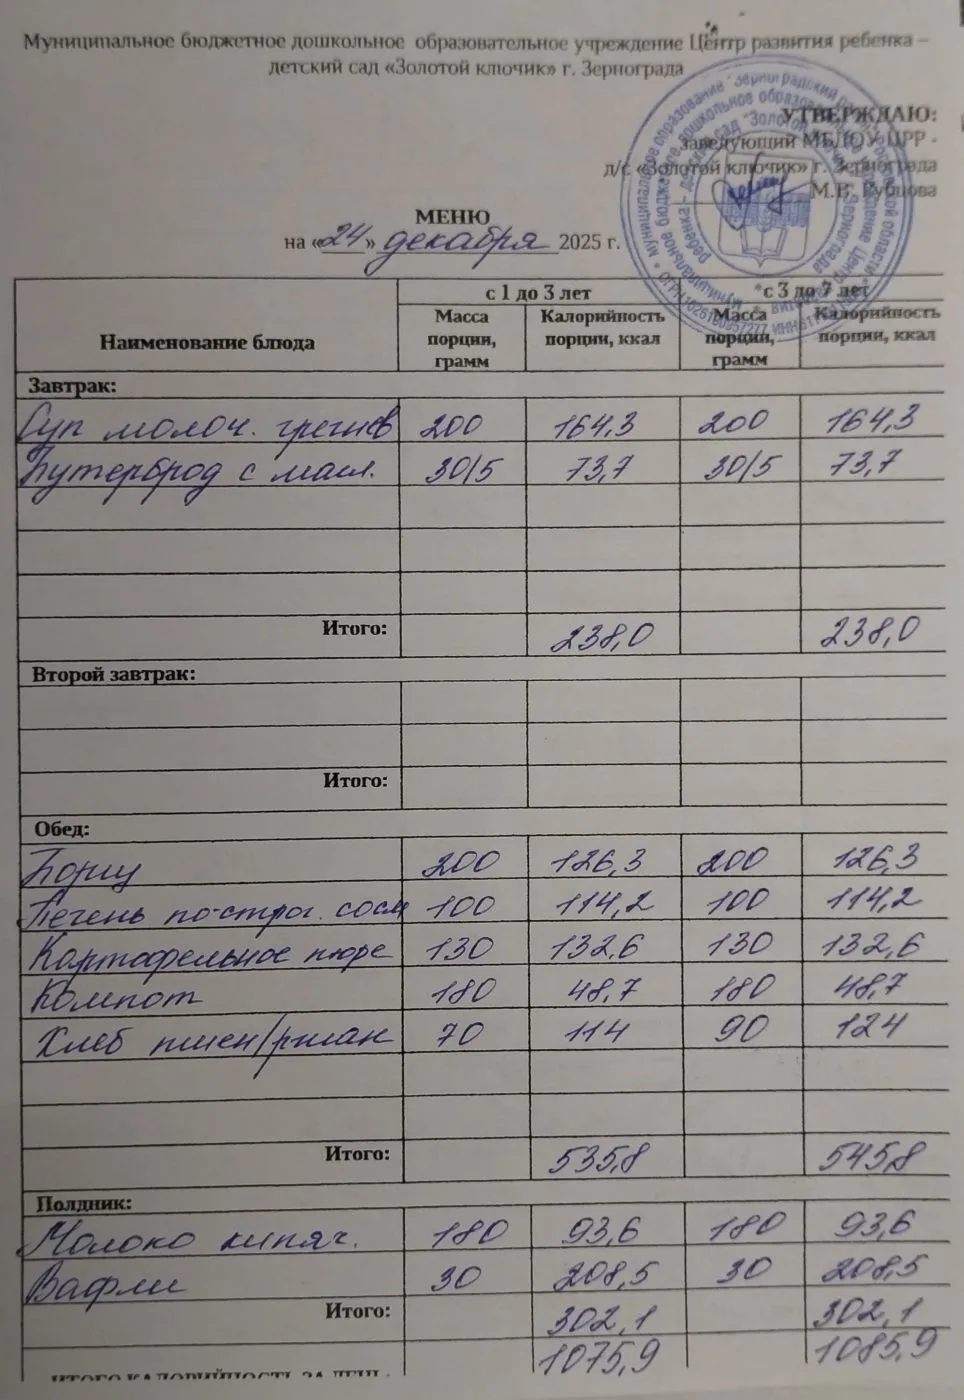 Муниципальное бюджетное дошкольное образовательное учреждение Центр развития ребенка –
детский сад «Золотой ключик» г. Зернограда
УТВЕРЖДАЮ:
заведующий МБДОУ ЦРР -
д/с «Золотой ключик» г. Зернограда
М.В. Рубцова
МЕНЮ
на «24» декабря 2025 г.
Наименование блюда с 1 до 3 лет с 3 до 7 лет
Масса порции, грамм Калорийность порции, ккал Масса порции, грамм Калорийность порции, ккал
Завтрак:
Суп молоч. гречнев 200 164,3 200 164,3
Бутерброд с масл. 30/5 73,7 30/5 73,7
Итого: 238,0 238,0
Второй завтрак:
Итого:
Обед:
Борщ 200 126,3 200 126,3
Печень по-строг. 100 114,2 100 114,2
Картофельное пюре 130 132,6 130 132,6
Компот 180 48,7 180 48,7
Хлеб пшен/ржан 70 114 90 124
Итого: 535,8 545,8
Полдник:
Молоко кипяч. 180 93,6 180 93,6
Вафли 30 208,5 30 208,5
Итого: 302,1 302,1
ИТОГО КАЛОРИЙНОСТЬ ЗА ДЕНЬ: 1075,9 1085,9